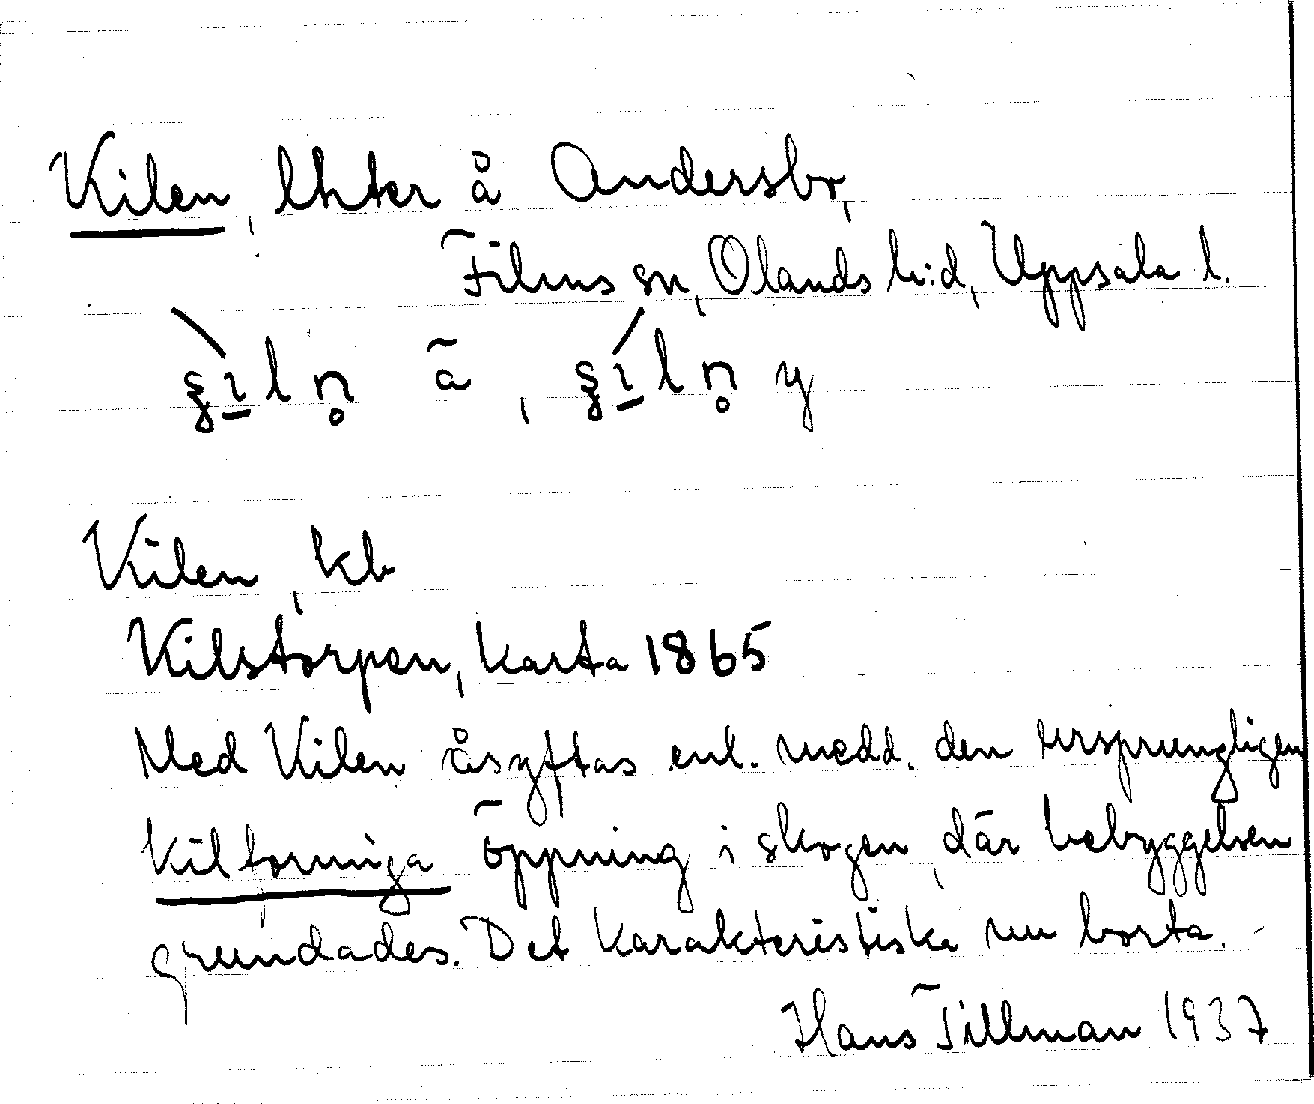 Kilen, lhter å Andersbo,
Films sn, Olands h:d, Uppsala l.
Kilen, kb
Kilstorpen, karta 1865
Med Kilen åsyftas enl. medd. den ursprungligen
kilformiga öppning i skogen, där bebyggelsen
grundades. Det karakteristiska nu borta.
Hans Tillman 1937